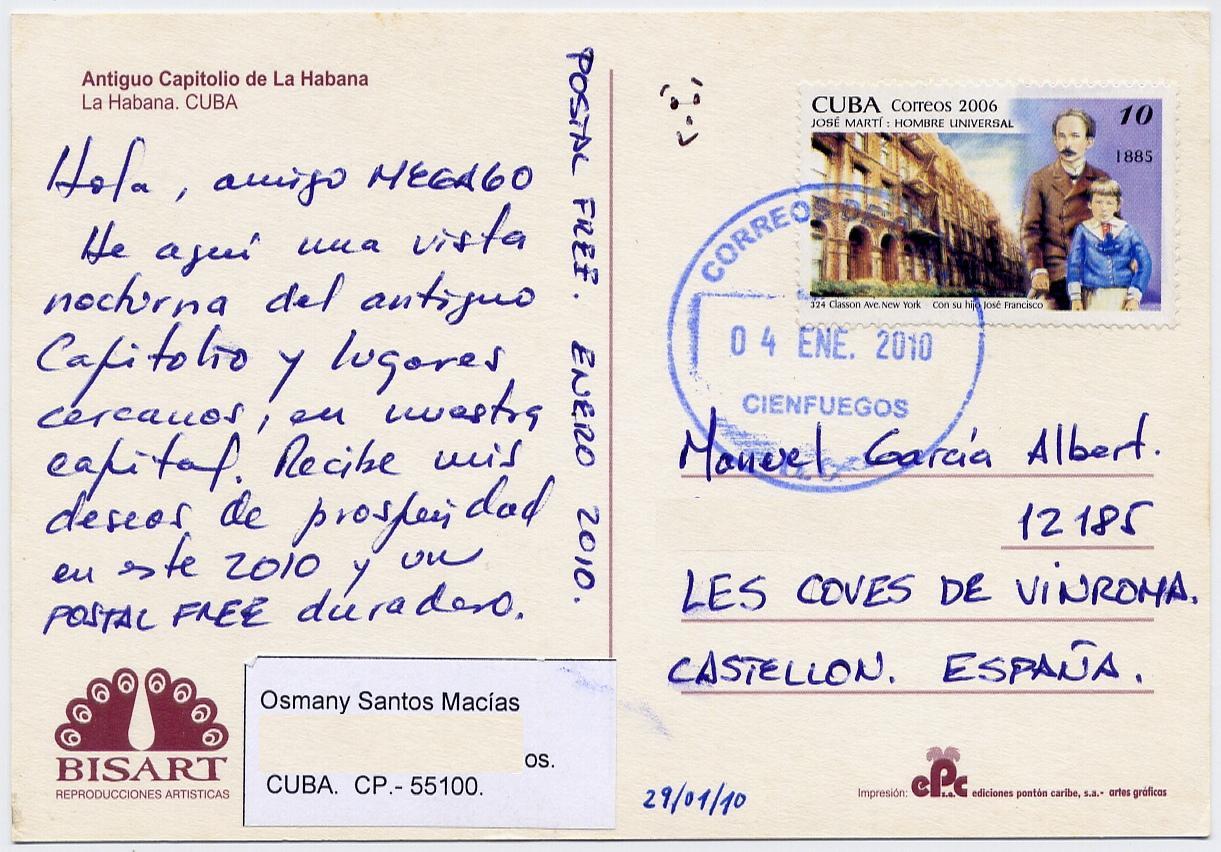 Antiguo Capitolio de La Habana
La Habana. CUBA
Hola, amigo MEGA60
He aquí una vista
nocturna del antiguo
Capitolio y lugares
cercanos, en nuestra
capital. Recibe mis
deseos de prosperidad
en este 2010 y un
POSTAL FREE duradero.
POSTAL FREE. ENERO 2010.
BISART
REPRODUCCIONES ARTISTICAS
Osmany Santos Macías
os.
CUBA. CP.- 55100.
CUBA Correos 2006
JOSÉ MARTÍ : HOMBRE UNIVERSAL
10
1885
324 Classon Ave. New York Con su hijo José Francisco
CORREOS
04 ENE. 2010
CIENFUEGOS
Manuel García Albert.
12185
LES COVES DE VINROMA.
CASTELLON. ESPAÑA.
29/01/10
Impresión: ePc s.a. ediciones pontón caribe, s.a.- artes gráficas